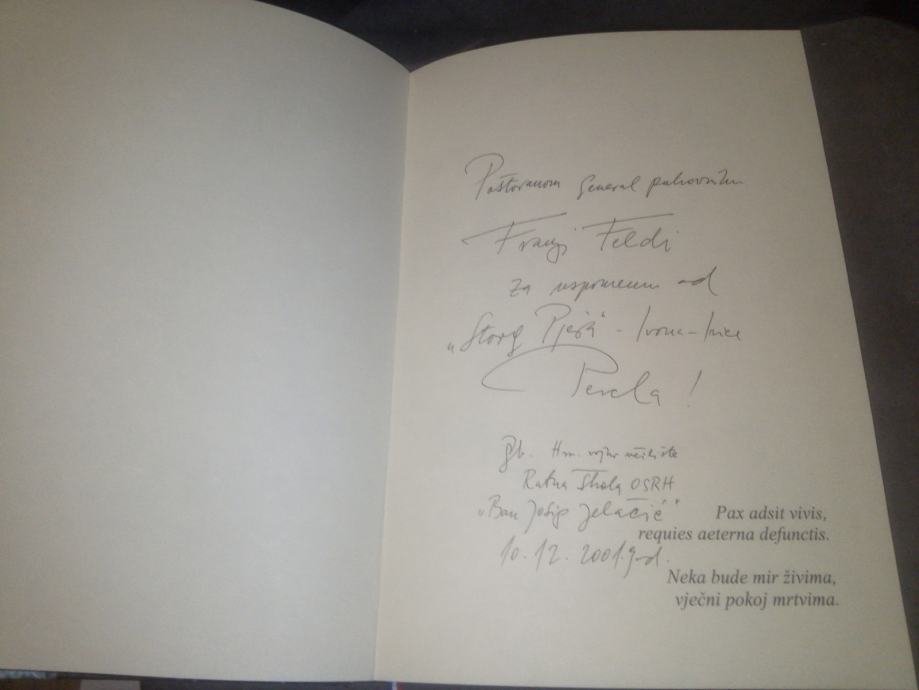 Poštovanom general pukovniku
Franji Feldi
za uspomenu od
„Starog Pješ" - Ivona-Ivice
Percla!
Zb. Hrv. vojno učilište
Ratna škola OSRH
„Ban Josip Jelačić"
10.12.2001. god.
Pax adsit vivis,
requies aeterna defunctis.
Neka bude mir živima,
vječni pokoj mrtvima.